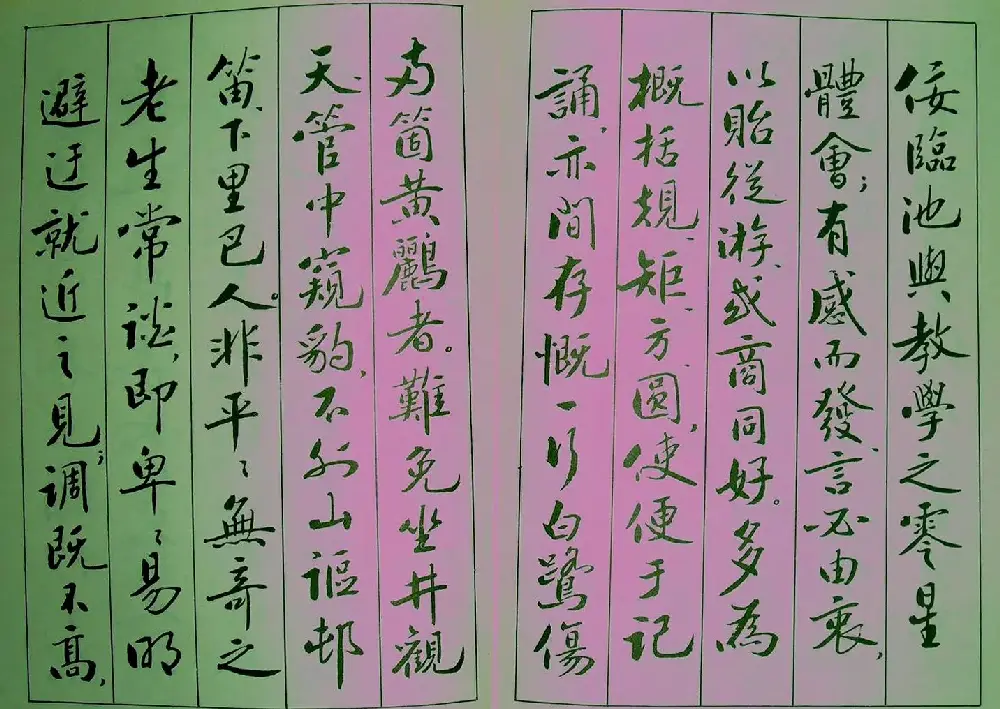 佞臨池與教學之零星
體會；有感而發、言必由衷，
以貽從游、或商同好。多為
概括規、矩、方、圓，使便于记
誦，亦間存慨一行白鷺傷
两箇黄鸝者。難免坐井觀
天、管中窺豹，不外山謳邨
笛、下里巴人。非平〻無奇之
老生常谈，即卑〻易明
避迂就近之見；调既不高，